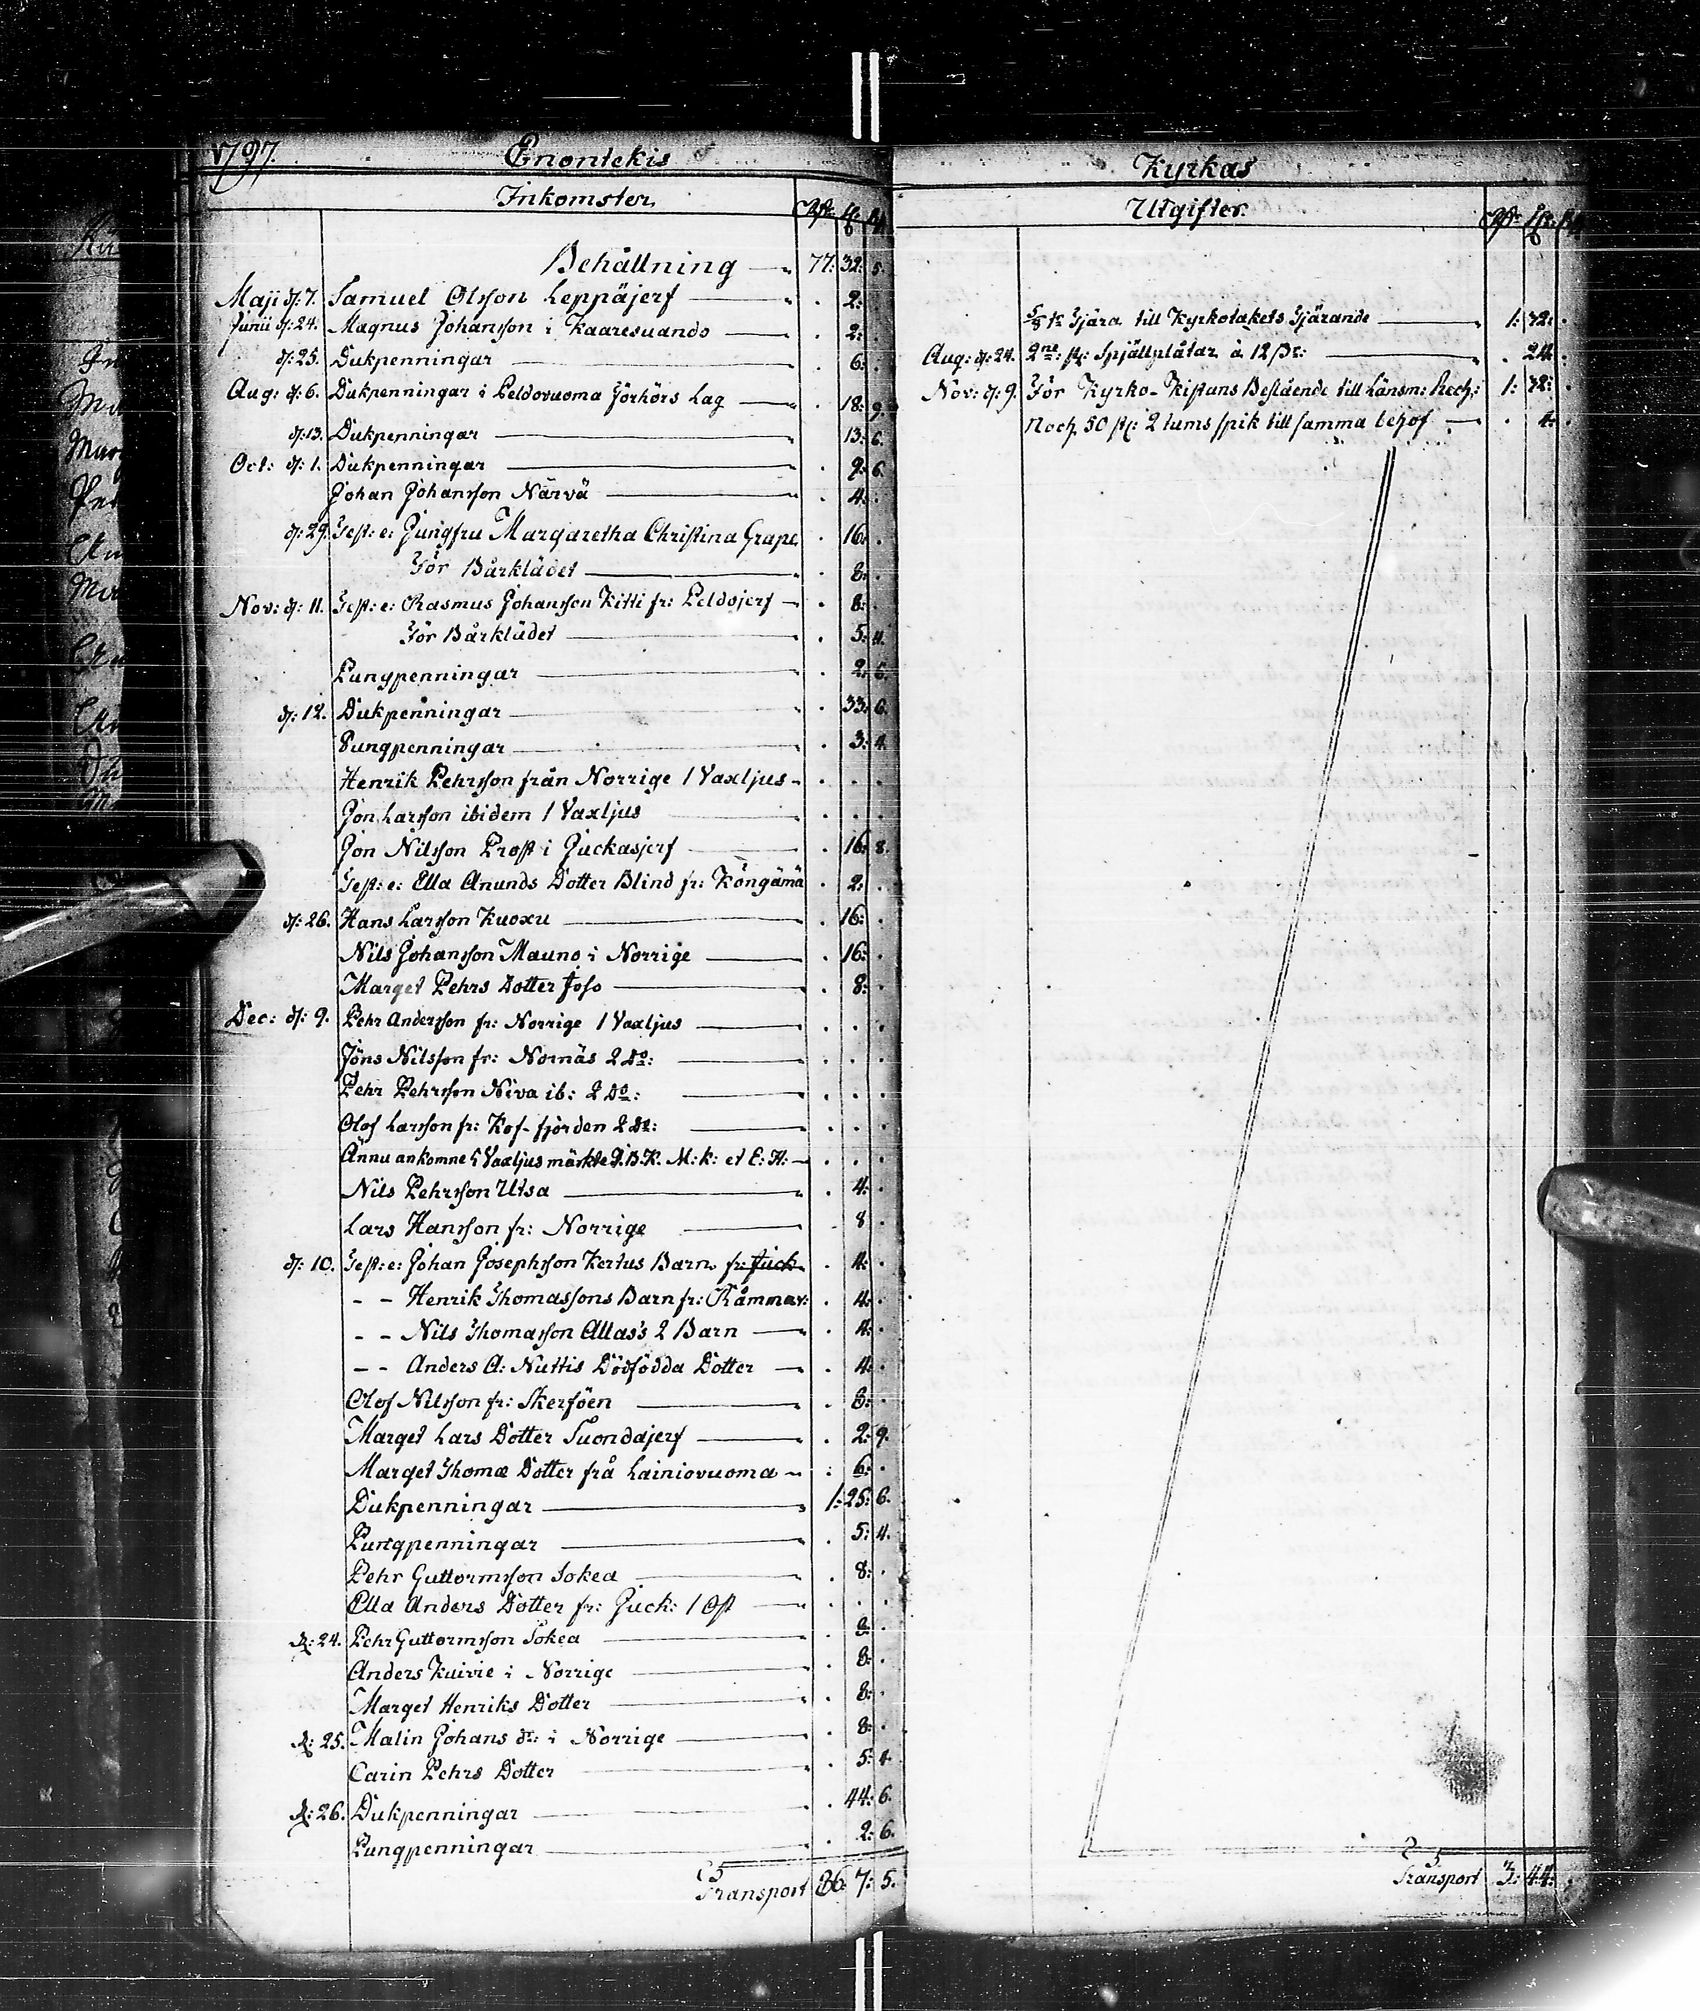 1797.
Enontekis
Inkomster.
Behållning 77: 32: 5.
Maji d: 7. Samuel Olsson Leppäjerf . 2: .
Junii d: 24. Magnus Johansson i Kaaresuando . 2: .
d: 25. Dukpenningar . 6: .
Aug: d: 6. Dukpenningar i Peldovuoma Förhörs Lag . 18: 9.
d: 13. Dukpenningar . 13: 6.
Oct: d: 1. Dukpenningar . 9: 6.
Johan Johansson Närvä . 4: .
d: 29. Test: e: Jungfru Margaretha Christina Grape . 16: .
För Bårklädet . 8: .
Nov: d: 11. Test: e: Rasmus Johansson Kitti fr: Peldojerf . 8: .
För Bårklädet . 5: 4.
Pungpenningar . 2: 6.
d: 12. Dukpenningar . 33: 6.
Pungpenningar . 3: 4.
Henrik Pehrsson från Norrige 1 Vaxljus . . .
Jon Larsson ibidem 1 Vaxljus . . .
Jon Nilsson Prost i Juckasjerf . 16: 8.
Test: e: Ella Anunds Dotter Blind fr: Köngämä . 2: .
d: 26. Hans Larsson Kuoxu . 16: .
Nils Johansson Mauno i Norrige . 16: .
Marget Pehrs Dotter . 8: .
Dec: d: 9. Pehr Andersson fr: Norrige 1 Vaxljus . . .
Jöns Nilsson fr: Nornäs 2 Do: . . .
Pehr Pehrsson Niva ib: 2 Do: . . .
Olof Larsson fr: Kof-fjorden 2 Do: . . .
Ännu ankomne 5 Vaxljus märkte P.B.K. M: k: et E: H: . . .
Nils Pehrsson Utsa . 4: .
Lars Hansson fr: Norrige . 8 .
d: 10. Test: e: Johan Josephsson Kertus Barn fr: Juck . 4: .
- - Henrik Thomassons Barn fr: Råmmav: . 4: .
- - Nils Thomasson Allas's 2 Barn . 4: .
- - Anders A: Nuttis Dödfödda Dotter . 4: .
Olof Nilsson fr: Skerföen . 8: .
Marget Lars Dotter Suondajerf . 2: 9.
Marget Thomæ Dotter frå Lainiovuoma . 6: .
Dukpenningar 1: 25: 6.
Pungpenningar . 5: 4.
Pehr Guttormsson Sokea . 8: .
Ella Anders Dotter fr: Juck: 1 Ost . . .
d: 24. Pehr Guttormsson Sokea . 8: .
Anders Kuivie i Norrige . 8: .
Marget Henriks Dotter . 8: .
d: 25. Malin Johans dr: i Norrige . 8: .
Carin Pehrs Dotter . 5: 4.
d: 26. Dukpenningar . 44: 6.
Pungpenningar . 2: 6.
Transport 86: 7: 5.
Kyrkas
Utgifter.
5/8 tr Tjära till Kyrkotakets Tjärande 1: 32: .
Aug: d: 24. 2ne: st: Spjällplåtar à 12 sk: . 24: .
Nov: d: 9. För Kyrko-Kistans Beslående till Länsm: Hech: 1: 32: .
Noch 50 st: 2 tums spik till samma behof . 4: .
Transport 3: 44: .